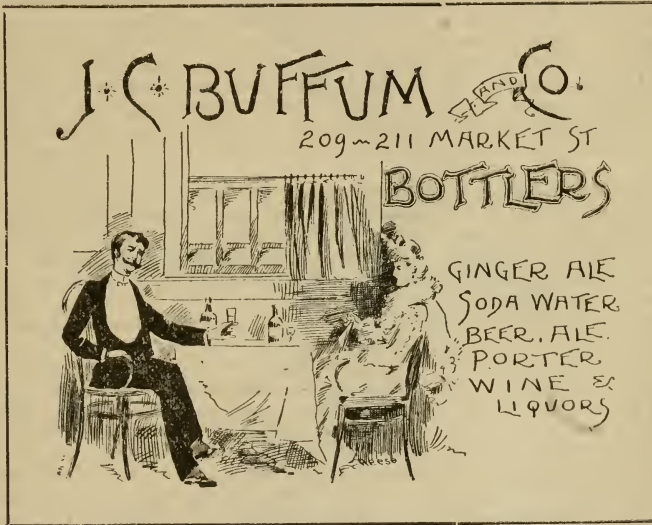 J. C. BUFFUM AND CO.
209-211 MARKET ST
BOTTLERS
GINGER ALE
SODA WATER
BEER, ALE.
PORTER
WINE &
LIQUORS